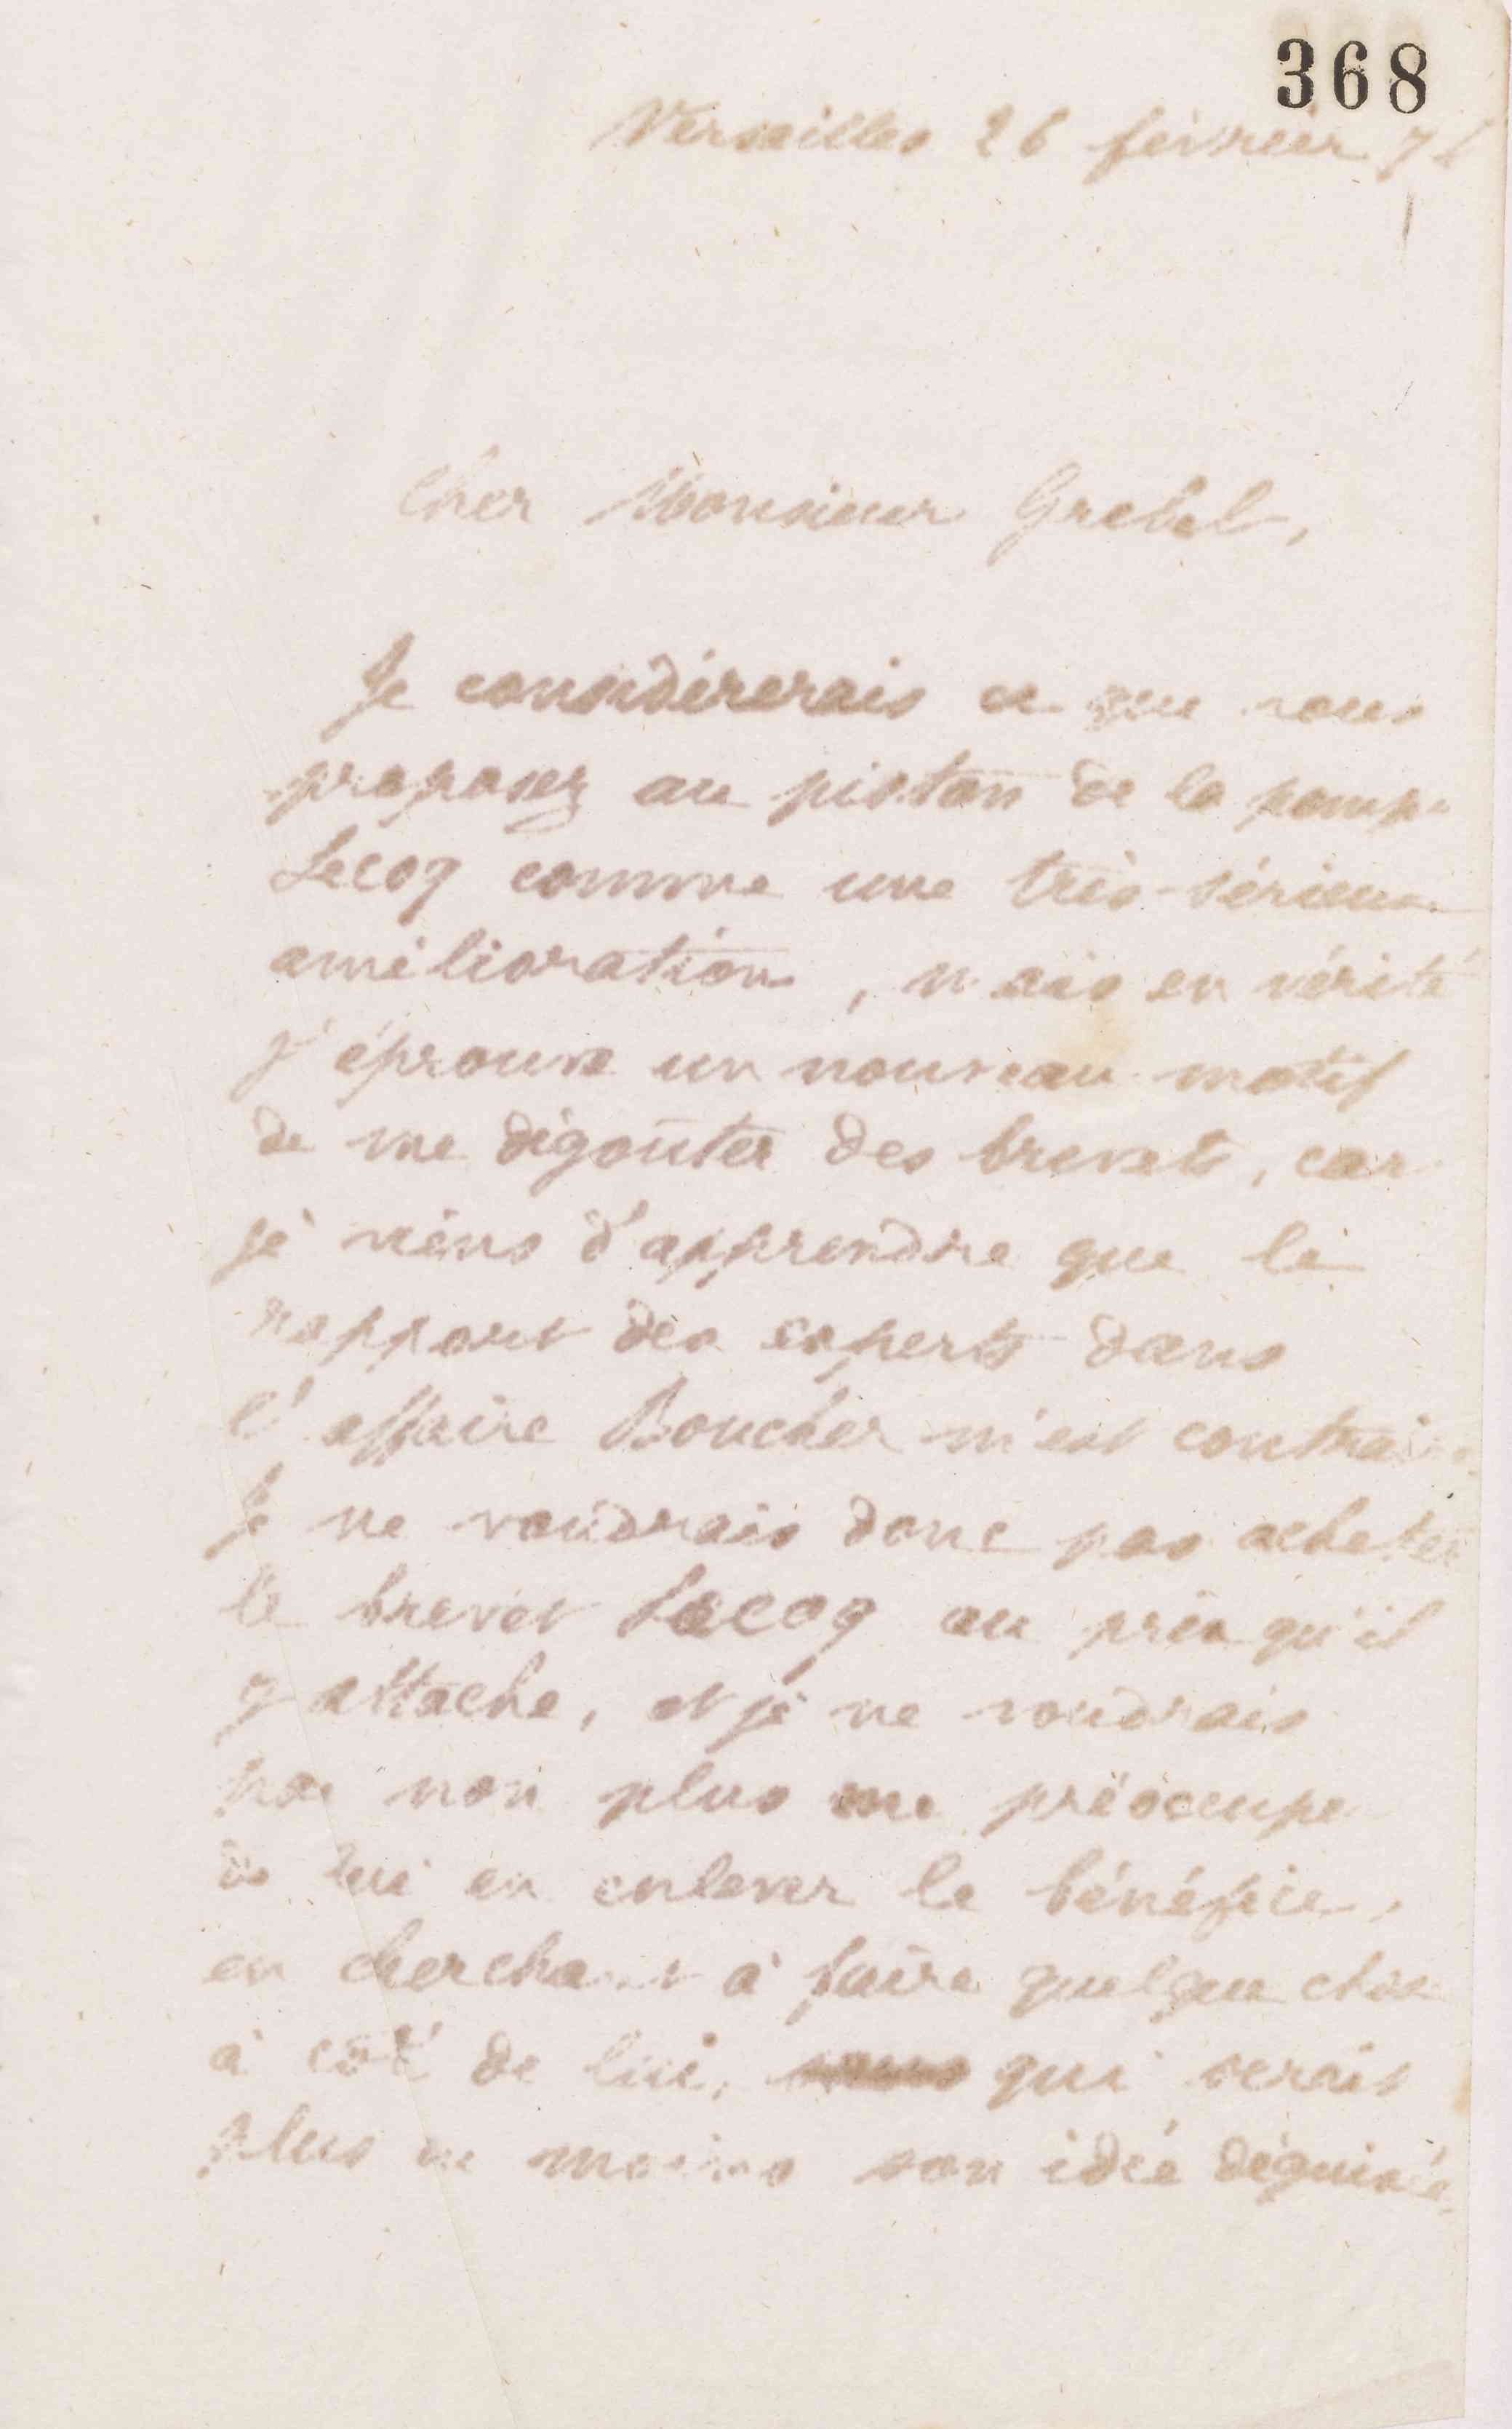 368
Versailles 26 février 7
Cher Monsieur Grebel,
Je considérerais ce que vous
proposez au piston de la pompe
Lecoq comme une très-sérieuse
amélioration, mais en vérité
j'éprouve un nouveau motif
de me dégoûter des brevets, car
je viens d'apprendre que le
rapport des experts dans
l'affaire Boucher m'est contraire.
Je ne voudrais donc pas acheter
le brevet Lecoq au prix qu'il
y attache, et je ne voudrais
pas non plus me préoccuper
de lui en enlever le bénéfice,
en cherchant à faire quelque chose
à côté de lui, qui serait
plus ou moins son idée déguisée,